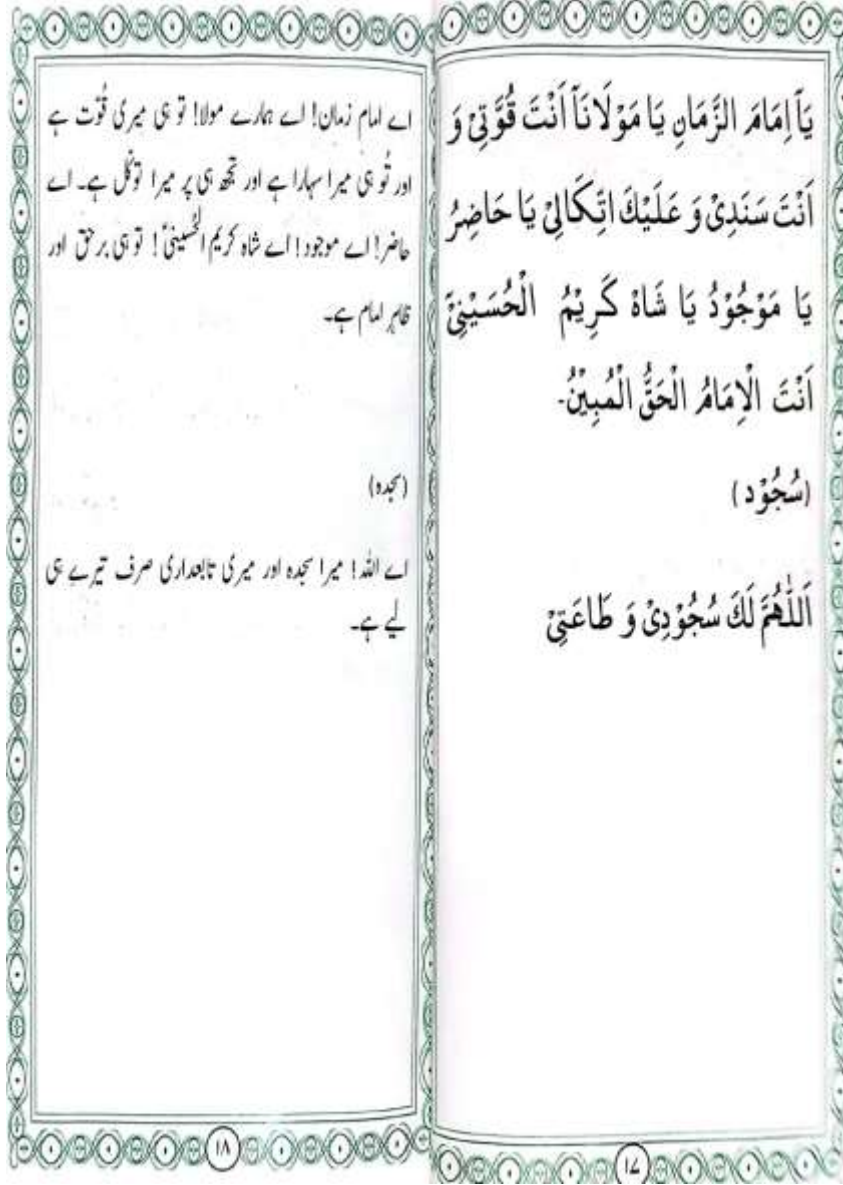 يَآ اِمَامَ الزَّمَانِ يَا مَوْلَانَآ اَنْتَ قُوَّتِيْ وَ
اَنْتَ سَنَدِيْ وَ عَلَيْكَ اتِّكَالِيْ يَا حَاضِرُ
يَا مَوْجُوْدُ يَا شَاهْ كَرِيْمُ الْحُسَيْنِيُّ
اَنْتَ الْاِمَامُ الْحَقُّ الْمُبِيْنُ۔
(سُجُوْد)
اَللّٰهُمَّ لَكَ سُجُوْدِيْ وَ طَاعَتِيْ
۱۷
اے امام زمان! اے ہمارے مولا! تو ہی میری قُوّت ہے
اور تُو ہی میرا سہارا ہے اور تجھ ہی پر میرا توکّل ہے۔ اے
حاضر! اے موجود! اے شاہ کریم الحُسینیؑ! تو ہی برحق اور
ظاہر امام ہے۔
(سجدہ)
اے اللہ! میرا سجدہ اور میری تابعداری صرف تیرے ہی
لیے ہے۔
۱۸